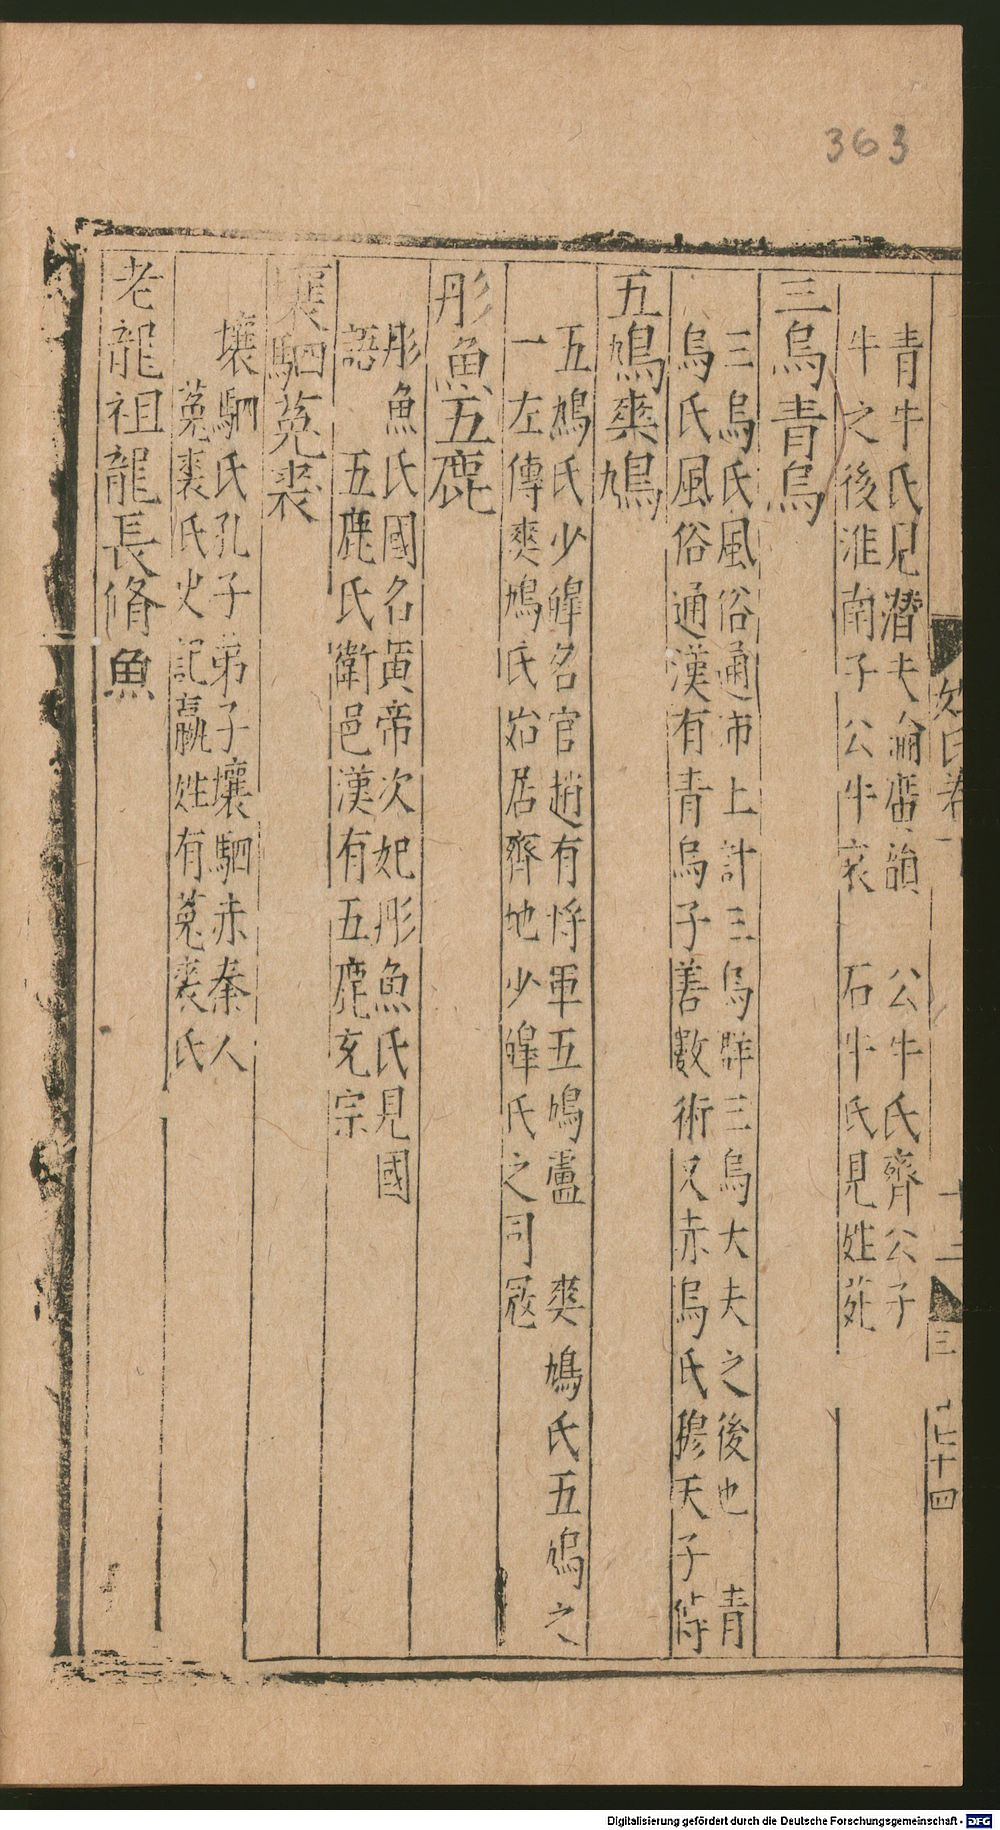 363
青牛氏見潜夫論舊韻　公牛氏齊公子
牛之後淮南子公牛哀　石牛氏見姓苑
三烏青烏
三烏氏風俗通市上計三烏群三烏大夫之後也　青
烏氏風俗通漢有青烏子善數術又赤烏氏穆天子傳
五鳩爽鳩
五鳩氏少皥名官趙有將軍五鳩盧　爽鳩氏五鳩之
一左傳爽鳩氏始居齊地少皥氏之司冦
彤魚五鹿
彤魚氏國名黃帝次妃彤魚氏見國
語　五鹿氏衛邑漢有五鹿充宗
壤駟菟裘
壤駟氏孔子弟子壤駟赤秦人
菟裘氏史記嬴姓有菟裘氏
老龍祖龍長脩魚
氏卷一
十三
三
七十四
Digitalisierung gefördert durch die Deutsche Forschungsgemeinschaft - DFG